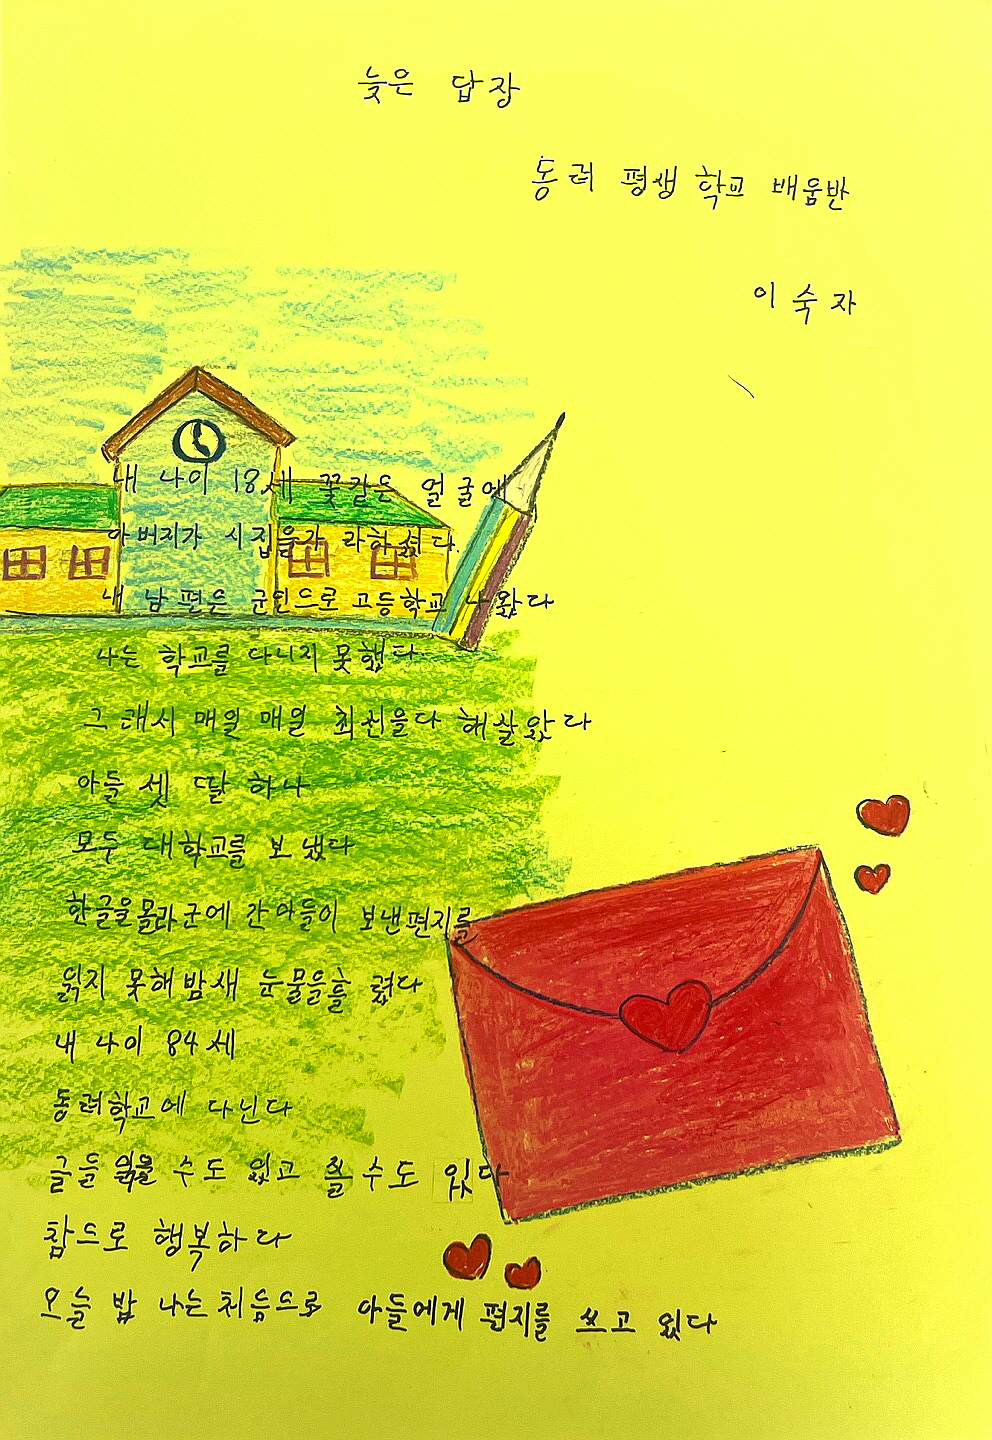 늦은 답장
동려 평생 학교 배움반
이숙자
내 나이 18세 꽃같은 얼굴에
아버지가 시집을가 라하셨다.
내 남편은 군인으로 고등학교 나왔다
나는 학교를 다니지 못했다.
그래서 매일 매일 최선을다 해살았다
아들 셋 딸 하나
모두 대학교를 보냈다
한글을몰라군에 간아들이 보낸편지를
읽지 못해밤새 눈물을흘 렸다
내 나이 84세
동려학교에 다닌다
글을 읽을 수도 있고 쓸수도 있다
참으로 행복하다
오늘 밤 나는처음으로 아들에게 편지를 쓰고 있다